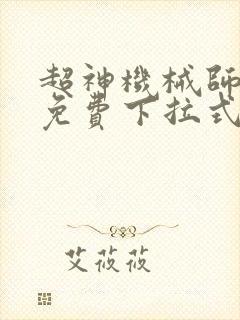 超神機械師
免費下拉式
艾莜莜